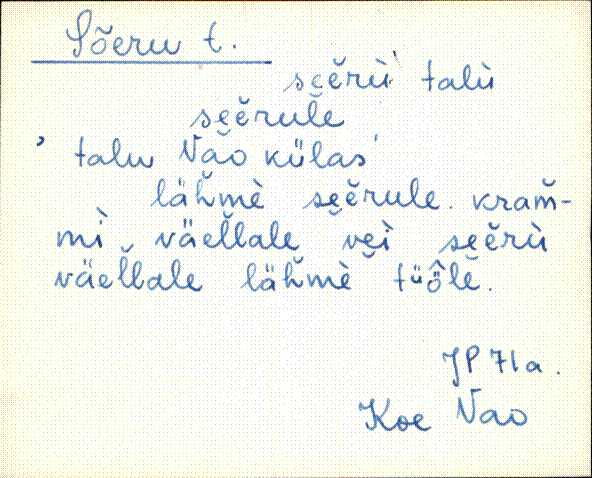 Sõeru t.
sẹĕrù talù
sẹĕrulĕ
' talu Năo külas'
läh̆mè sẹĕrule. kram̆-
mì väel̆lale vĕì sẹĕrù
väel̆lale läh̆mè tüö̂lĕ.
JP 71a.
Koe Nao